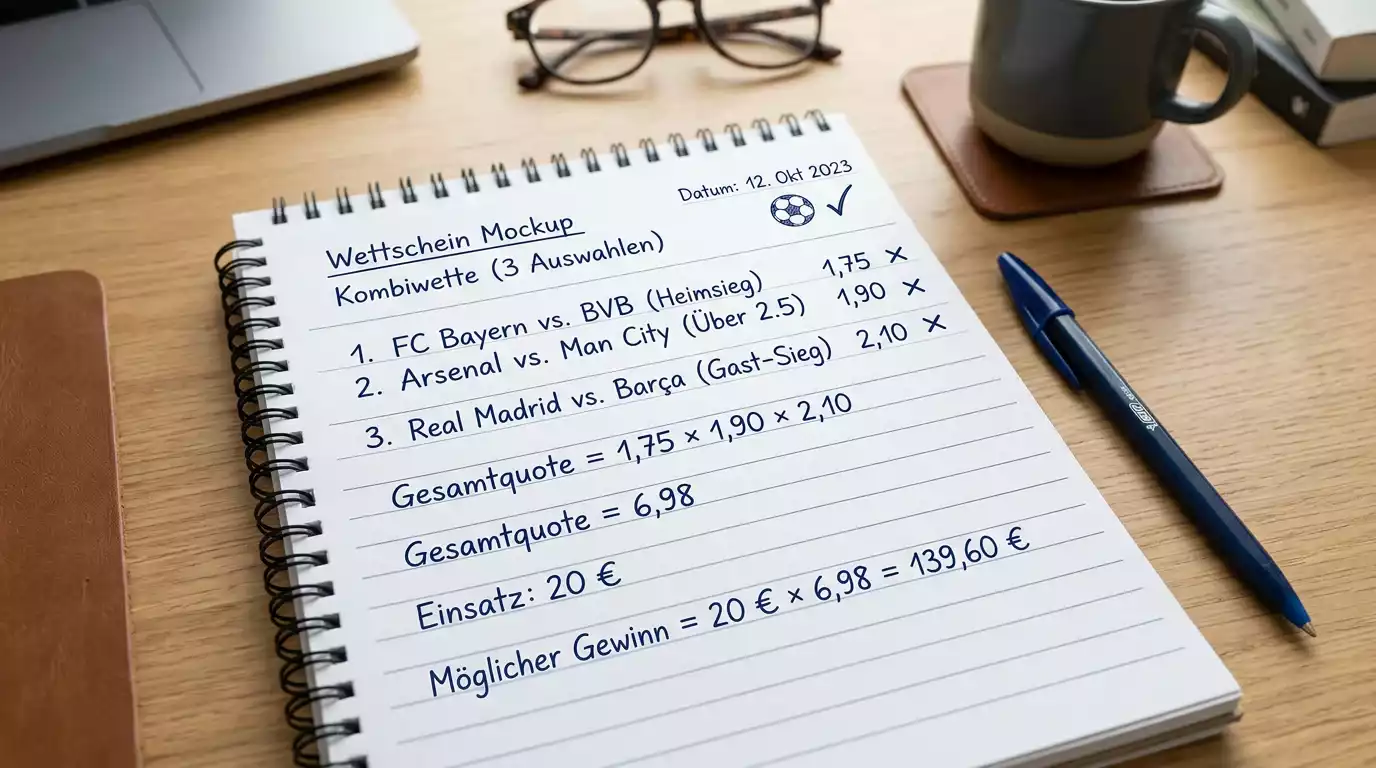 Datum: 12. Okt 2023
Wettschein Mockup
Kombiwette (3 Auswahlen)
1. FC Bayern vs. BVB (Heimsieg) 1,75 ×
2. Arsenal vs. Man City (Über 2.5) 1,90 ×
3. Real Madrid vs. Barça (Gast-Sieg) 2,10 ×
Gesamtquote = 1,75 × 1,90 × 2,10
Gesamtquote = 6,98
Einsatz: 20 €
Möglicher Gewinn = 20 € × 6,98 = 139,60 €